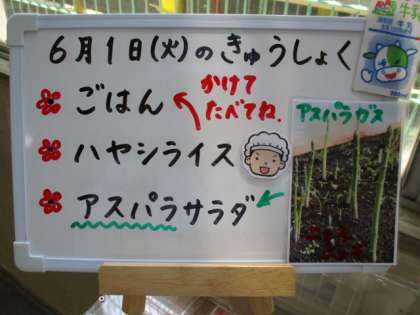 6月1日(火)のきゅうしょく
ごはん
かけて
たべてね.
ハヤシライス
アスパラサラダ
アスパラガス